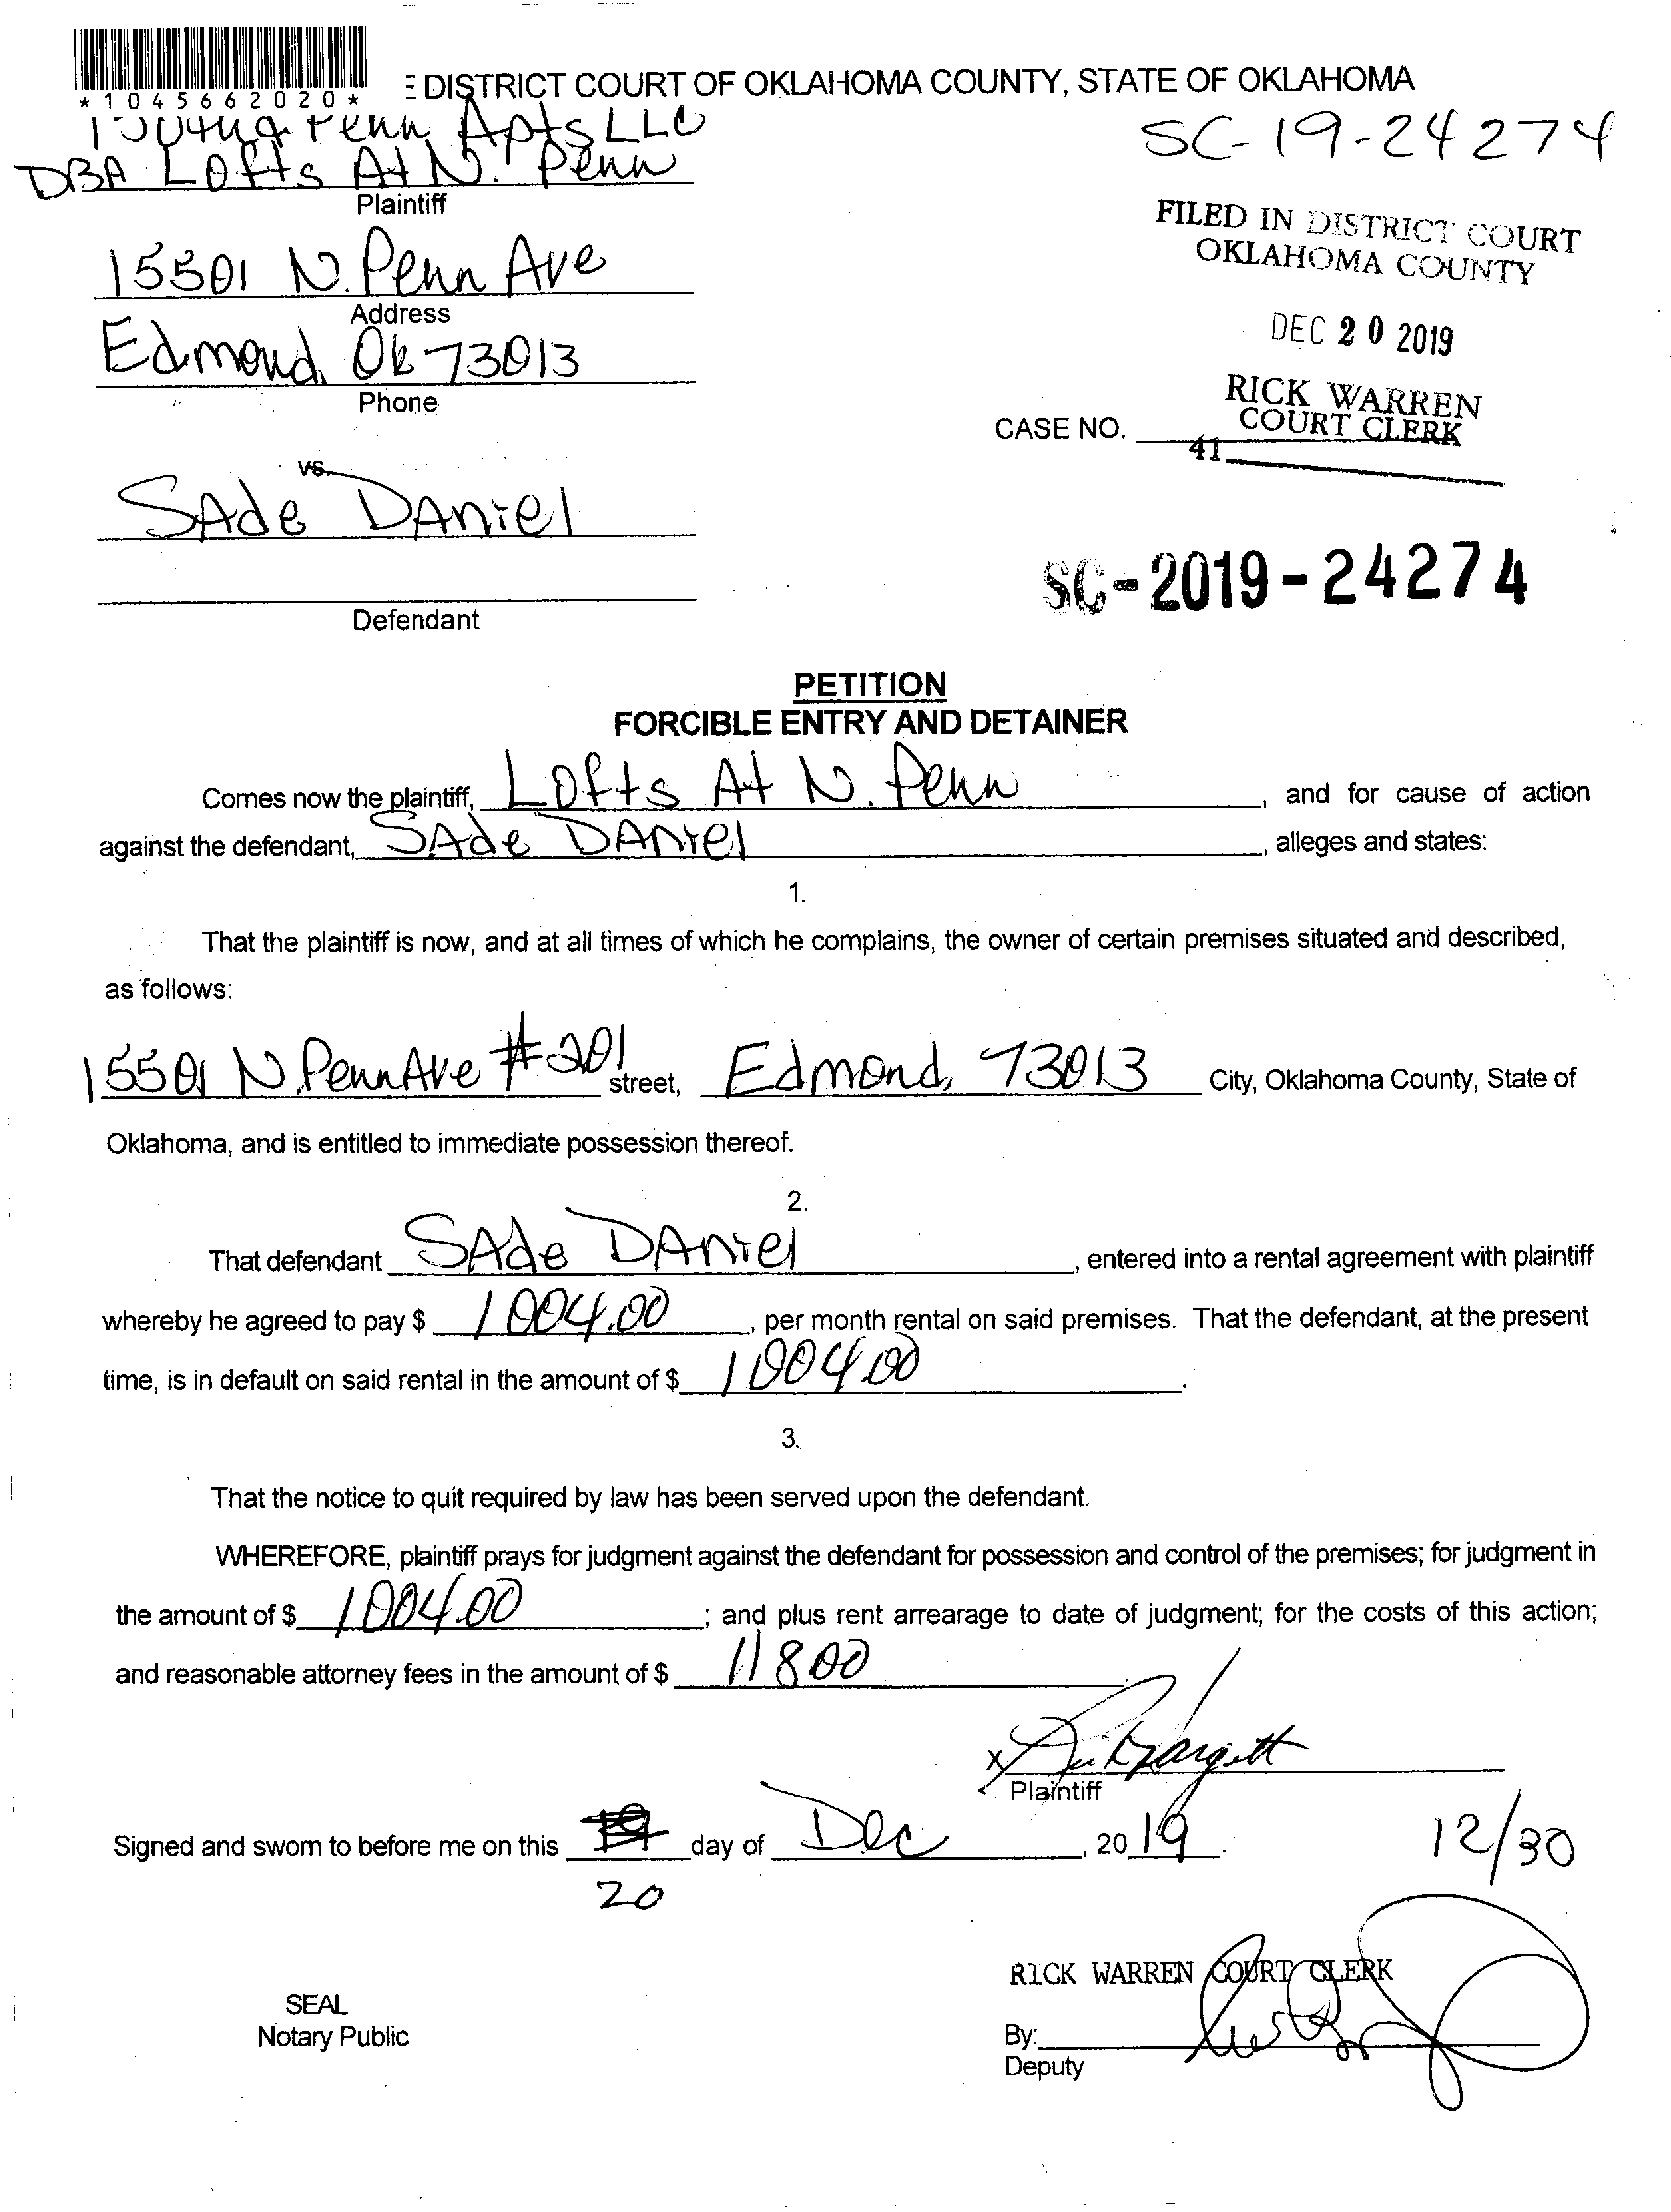 *1045662020*
DISTRICT COURT OF OKLAHOMA COUNTY, STATE OF OKLAHOMA
Penn Apts LLC
SC-19-24274
DBA Lofts At N. Penn
Plaintiff
FILED IN DISTRICT COURT
OKLAHOMA COUNTY
15501 N. Penn Ave
Address
DEC 20 2019
Edmond, Ok 73013
Phone
RICK WARREN
COURT CLERK
CASE NO.
41
vs.
SAde DAniel
SC-2019-24274
Defendant
PETITION
FORCIBLE ENTRY AND DETAINER
Comes now the plaintiff, Lofts At N. Penn, and for cause of action
against the defendant, SAde DAniel, alleges and states:
1.
That the plaintiff is now, and at all times of which he complains, the owner of certain premises situated and described,
as follows:
15501 N. Penn Ave #201 street, Edmond, 73013 City, Oklahoma County, State of
Oklahoma, and is entitled to immediate possession thereof.
2.
That defendant SAde DAniel, entered into a rental agreement with plaintiff
whereby he agreed to pay $ 1004.00, per month rental on said premises. That the defendant, at the present
time, is in default on said rental in the amount of $ 1004.00.
3.
That the notice to quit required by law has been served upon the defendant.
WHEREFORE, plaintiff prays for judgment against the defendant for possession and control of the premises; for judgment in
the amount of $ 1004.00; and plus rent arrearage to date of judgment; for the costs of this action;
and reasonable attorney fees in the amount of $ 118 00
x
Plaintiff
Signed and sworn to before me on this 19 day of Dec, 20 19.
12/30
20
RICK WARREN COURT CLERK
SEAL
Notary Public
By:
Deputy